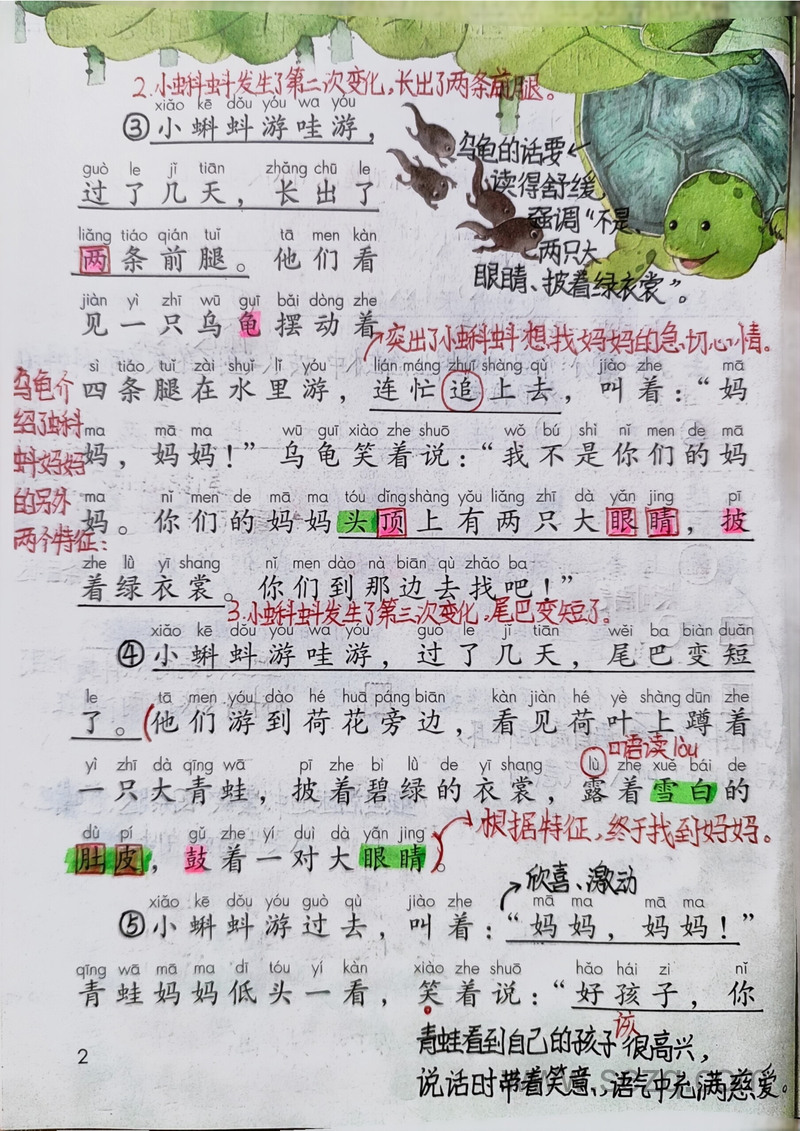 2.小蝌蚪发生了第二次变化,长出了两条前腿。
xiǎo kē dǒu yóu wa yóu
③小蝌蚪游哇游，
乌龟的话要
guò le jǐ tiān zhǎng chū le
读得舒缓,
过了几天，长出了
强调“不是、
liǎng tiáo qián tuǐ tā men kàn
两只大
两条前腿。他们看
眼睛、披着绿衣裳”。
jiàn yì zhī wū guī bǎi dòng zhe
见一只乌龟摆动着
突出了小蝌蚪想找妈妈的急切心情。
sì tiáo tuǐ zài shuǐ lǐ yóu lián máng zhuī shàng qù jiào zhe mā
四条腿在水里游，连忙追上去，叫着：“妈
乌龟介
绍了蝌
蚪妈妈
的另外
两个特征:
ma mā ma wū guī xiào zhe shuō wǒ bú shì nǐ men de mā
妈，妈妈！”乌龟笑着说：“我不是你们的妈
ma nǐ men de mā ma tóu dǐng shàng yǒu liǎng zhī dà yǎn jing pī
妈。你们的妈妈头顶上有两只大眼睛，披
zhe lǜ yī shang nǐ men dào nà biān qù zhǎo ba
着绿衣裳。你们到那边去找吧！”
3.小蝌蚪发生了第三次变化,尾巴变短了。
xiǎo kē dǒu yóu wa yóu guò le jǐ tiān wěi ba biàn duǎn
④小蝌蚪游哇游，过了几天，尾巴变短
le tā men yóu dào hé huā páng biān kàn jiàn hé yè shàng dūn zhe
了。他们游到荷花旁边，看见荷叶上蹲着
口语读lòu
yì zhī dà qīng wā pī zhe bì lǜ de yī shang lù zhe xuě bái de
一只大青蛙，披着碧绿的衣裳，露着雪白的
dù pí gǔ zhe yí duì dà yǎn jing
肚皮，鼓着一对大眼睛。
根据特征,终于找到妈妈。
欣喜、激动
xiǎo kē dǒu yóu guò qù jiào zhe mā ma mā ma
⑤小蝌蚪游过去，叫着：“妈妈，妈妈！”
qīng wā mā ma dī tóu yí kàn xiào zhe shuō hǎo hái zi nǐ
青蛙妈妈低头一看，笑着说：“好孩子，你
该
青蛙看到自己的孩子很高兴，
说话时带着笑意,语气中充满慈爱。
2